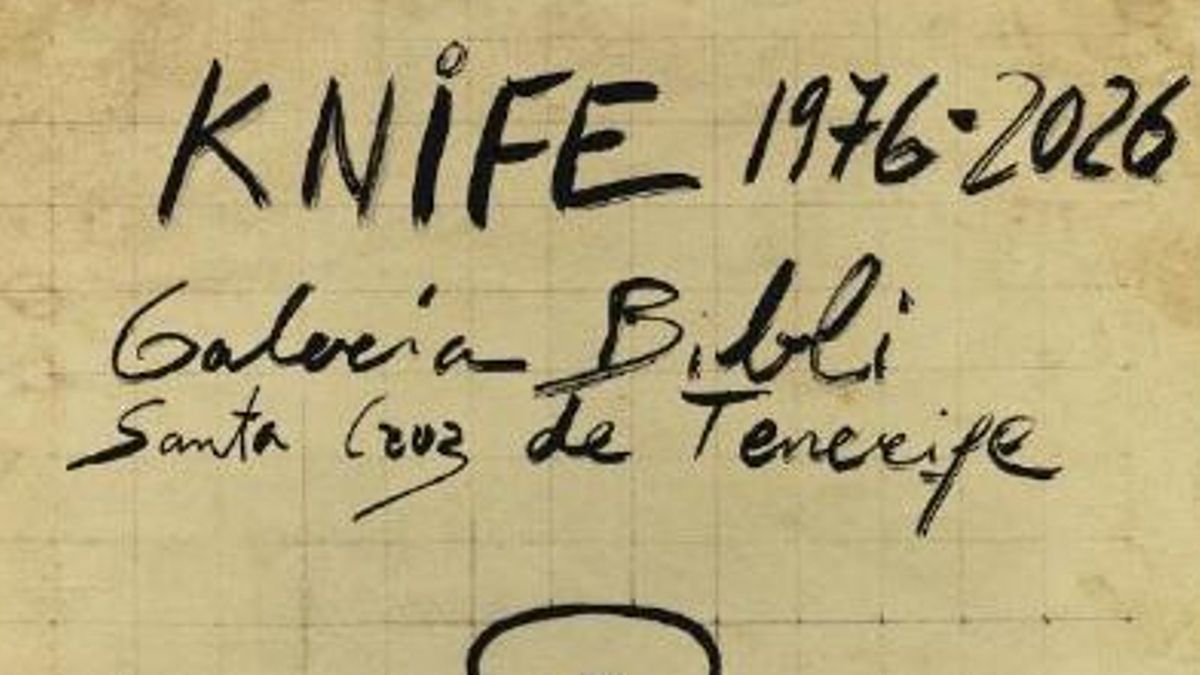 KNiFE 1976-2026
Galería Bibli
Santa Cruz de Tenerife